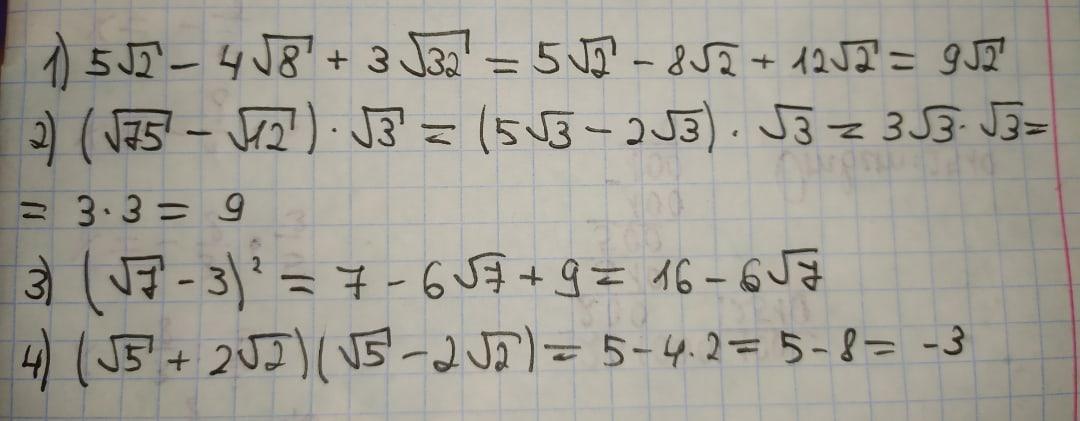 1) 5√2 - 4√8 + 3√32 = 5√2 - 8√2 + 12√2 = 9√2
2) (√75 - √12) · √3 = (5√3 - 2√3) · √3 = 3√3 · √3 =
= 3 · 3 = 9
3) (√7 - 3)² = 7 - 6√7 + 9 = 16 - 6√7
4) (√5 + 2√2)(√5 - 2√2) = 5 - 4·2 = 5 - 8 = -3